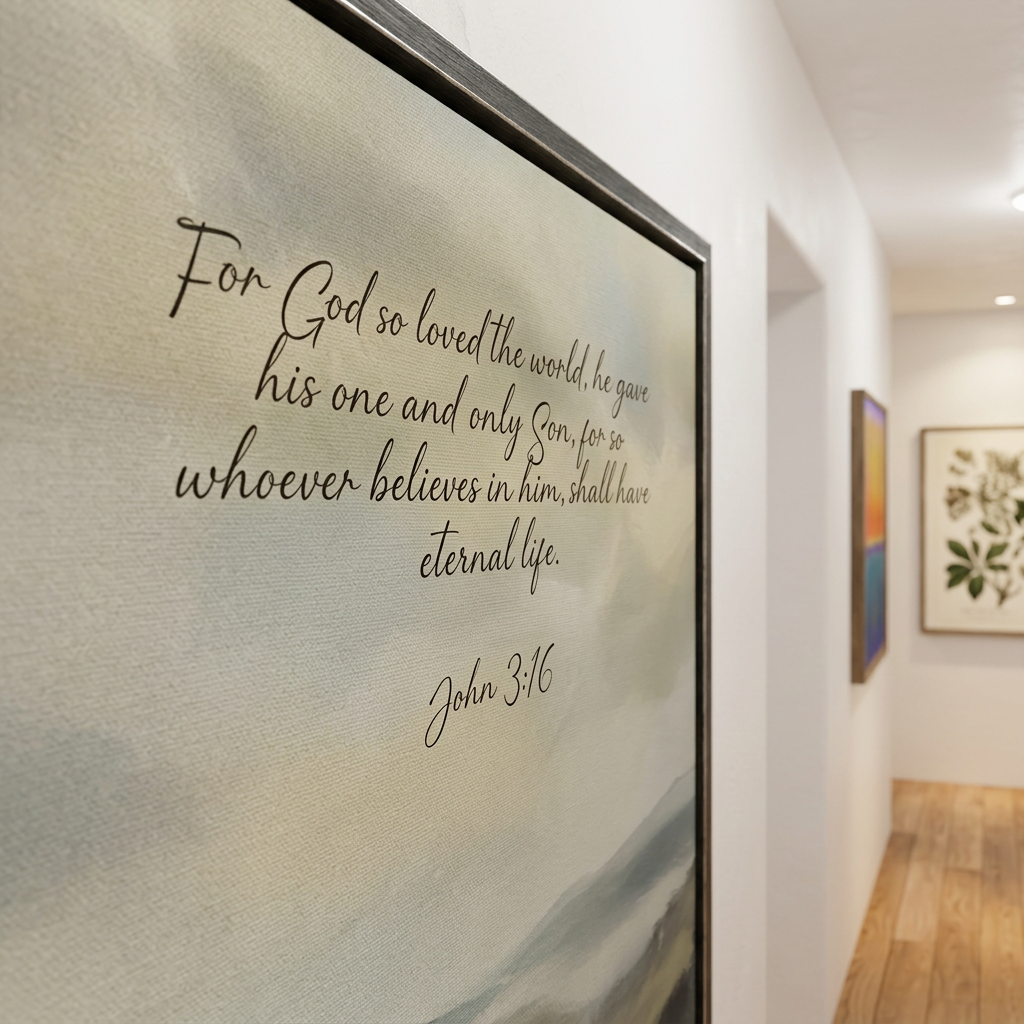 For God so loved the world, he gave
his one and only Son, for so
whoever believes in him, shall have
eternal life.
John 3:16